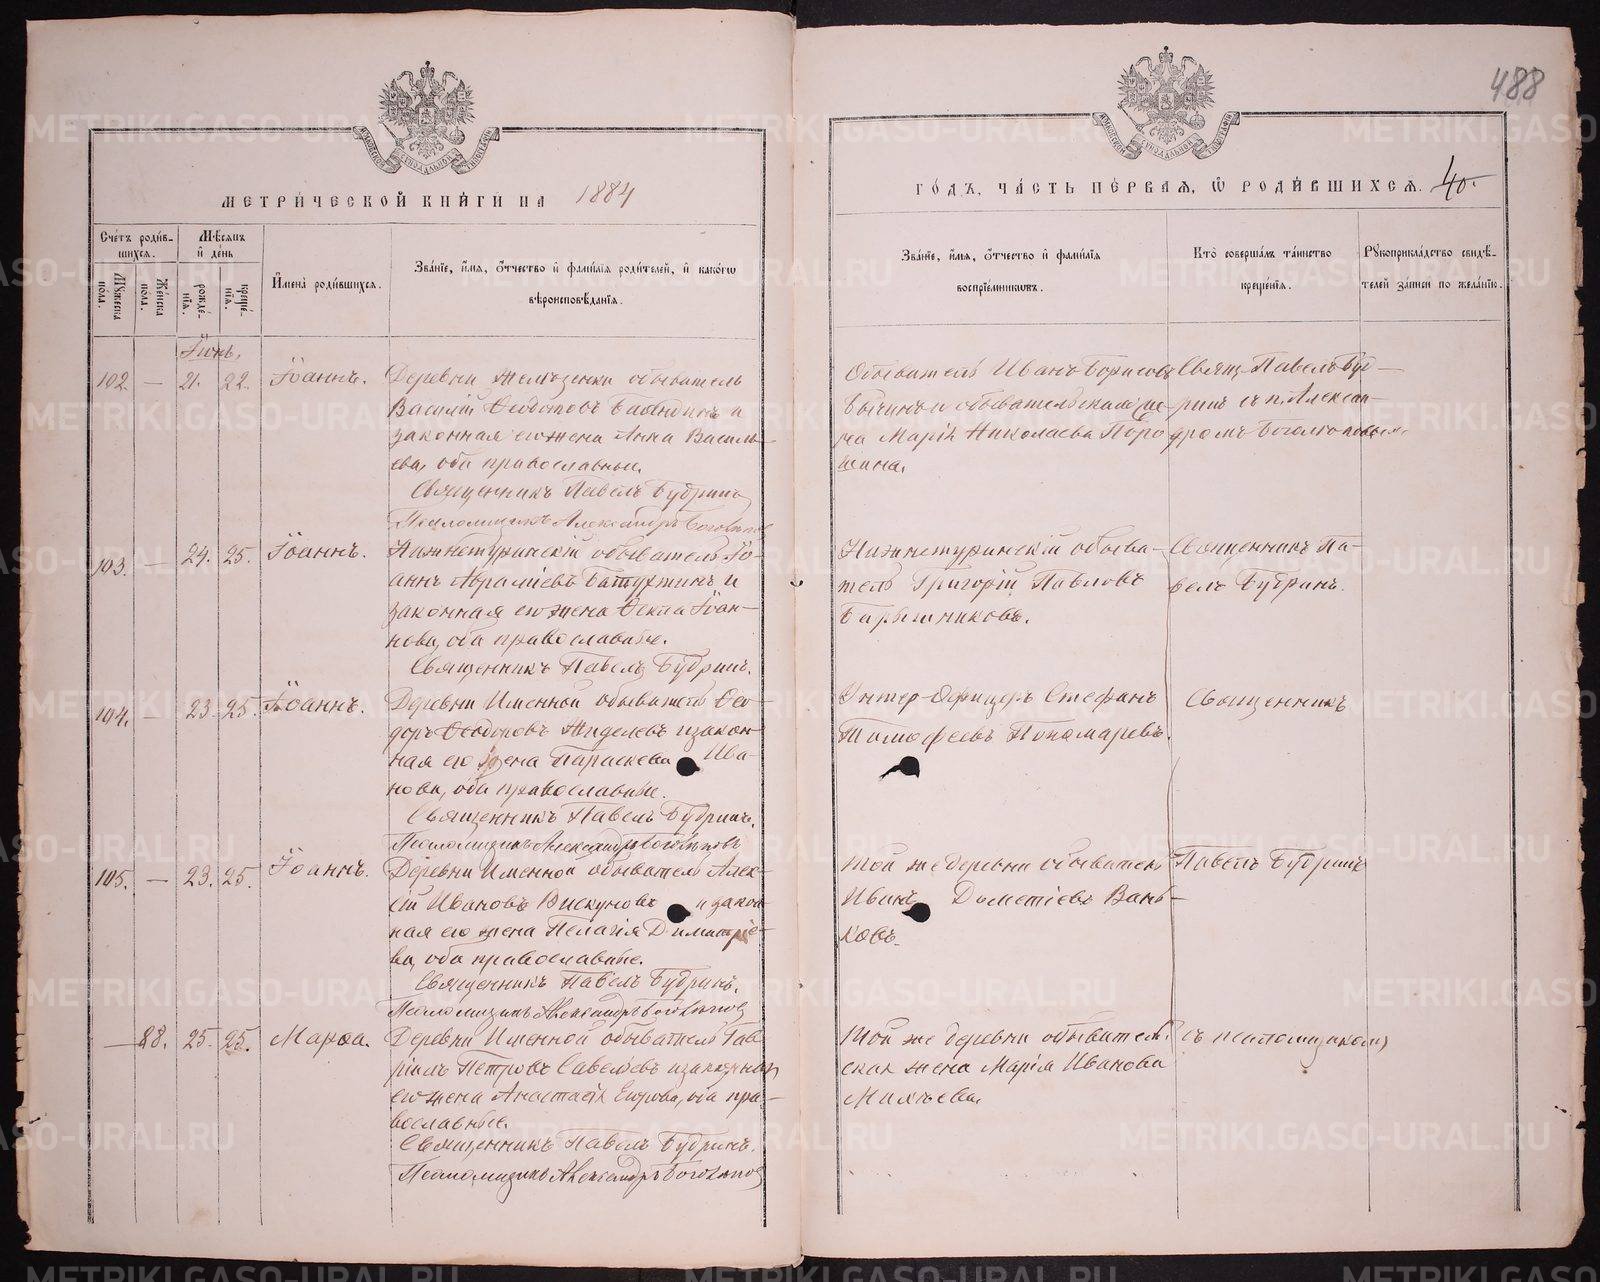 488
МЕТРИЧЕСКОЙ КНИГИ НА 1884
ГОДЪ, ЧАСТЬ ПЕРВАЯ, Ѡ РОДИВШИХСЯ. 40.
Счетъ родив-
шихся.
Мужеска пола.
Женска пола.
Мѣсяцъ и день
рожде-
нія.
креще-
нія.
Имена родившихся.
Званіе, имя, отчество и фамилія родителей, и какогѡ
вѣроисповѣданія.
Званіе, имя, отчество и фамилія
воспріемниковъ.
Кто совершалъ таинство
крещенія.
Рукоприкладство свидѣ-
телей записи по желанію.
Іюнь.
102 — 21. 22. Іоаннъ.
Деревни обыватель
Василій Ѳеодотовъ и
законная его жена Анна Василь-
ева, оба православные.
Священникъ Павелъ Будринъ
Псаломщикъ Александръ
Обыватель Иванъ Борисовъ
и обывательская
Марія Николаева Поро-
шина.
Свящ. Павелъ Буд-
ринъ съ п. Алексан-
дромъ
103. — 24. 25. Іоаннъ.
Нижнетуринскій обыватель Іо-
аннъ Авраміевъ Батухтинъ и
законная его жена Ѳекла Іоан-
нова, оба православные.
Священникъ Павелъ Будринъ.
Нижнетуринскій обыва-
тель Григорій Павловъ
Барышниковъ.
Священникъ Па-
велъ Будринъ.
104. — 23. 25. Іоаннъ.
Деревни Именной обыватель Ѳео-
доръ Ѳеодоровъ Жиделевъ и закон-
ная его жена Параскева Ива-
нова, оба православные.
Священникъ Павелъ Будринъ.
Псаломщикъ Александръ
Унтер-Офицеръ Стефанъ
Тимофеевъ Пономаревъ.
Священникъ
105. — 23. 25. Іоаннъ.
Деревни Именной обыватель Алек-
сій Ивановъ Вискуновъ и закон-
ная его жена Пелагія Димитріе-
ва, оба православные.
Священникъ Павелъ Будринъ.
Псаломщикъ Александръ
Той же деревни обыватель
Иванъ Дометіевъ Вань-
ковъ.
Павелъ Будринъ
— 88. 25. 25. Марѳа.
Деревни Именной обыватель Гав-
ріилъ Петровъ Савельевъ и законная
его жена Анастасія Егорова, оба пра-
вославные.
Священникъ Павелъ Будринъ.
Псаломщикъ Александръ
Той же деревни обыватель-
ская жена Марія Иванова
Михѣева.
съ псаломщикомъ
METRIKI.GASO-URAL.RU